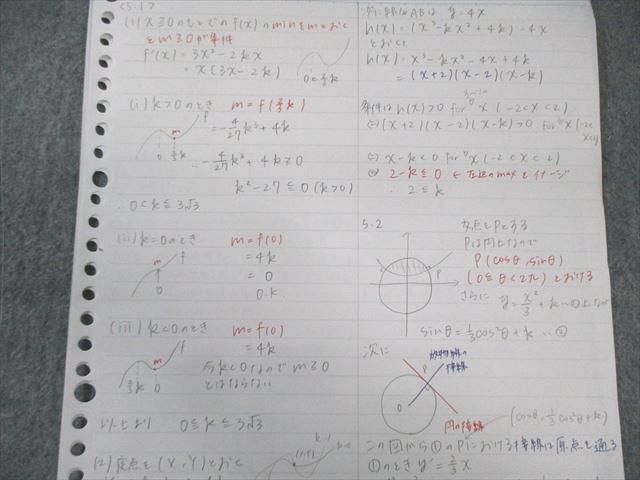 <5.1>
(1) x≧0のもとでのf(x)のminをmとおくと
m≧0が条件
f'(x) = 3x² - 2kx
= x(3x - 2k)
0 < 2/3k
(i) k>0のとき m = f(2/3k)
= -4/27k³ + 4k
∴ -4/27k³ + 4k ≧ 0
k² - 27 ≦ 0 (k>0)
∴ 0<k≦3√3
(ii) k=0のとき m=f(0)
= 4k
= 0
O.K.
(iii) k<0のとき m=f(0)
= 4k
k<0なので m≧0
とはならない
以上より 0≦k≦3√3
(2) 定点を(X,Y)とおく
次に線分ABは y=4x
h(x) = (x³ - kx² + 4k) - 4x
とおくと
h(x) = x³ - kx² - 4x + 4k
= (x+2)(x-2)(x-k)
条件は h(x)>0 for ∀x (-2<x<2)
⇔ (x+2)(x-2)(x-k)>0 for ∀x (-2<x<2)
⇔ x-k<0 for ∀x (-2<x<2)
⇔ 2-k≦0 ← 左辺のmaxをイメージ
∴ 2≦k
5.2
交点をPとする
Pは円上なので
P(cosθ, sinθ)
(0≦θ<2π)とおける
さらに y = x²/3 + k …①上なので
sinθ = 1/3cos²θ + k …②
次に
放物線の接線
P
O
円の接線
(cosθ, 1/3cos²θ + k)
この図から①のPにおける接線は原点を通る
①のとき y' = 2/3x